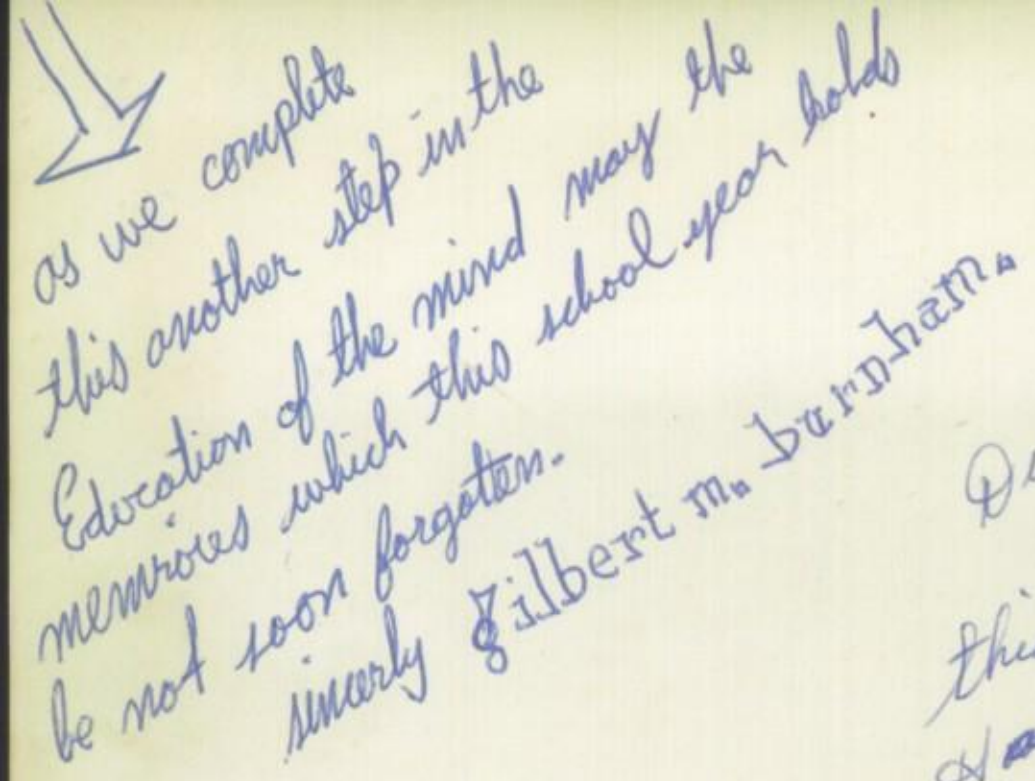 as we complete
this another step in the
Education of the mind may the
memroies which this school year holds
be not soon forgotten.
sincerly gilbert m. burnham.
thi